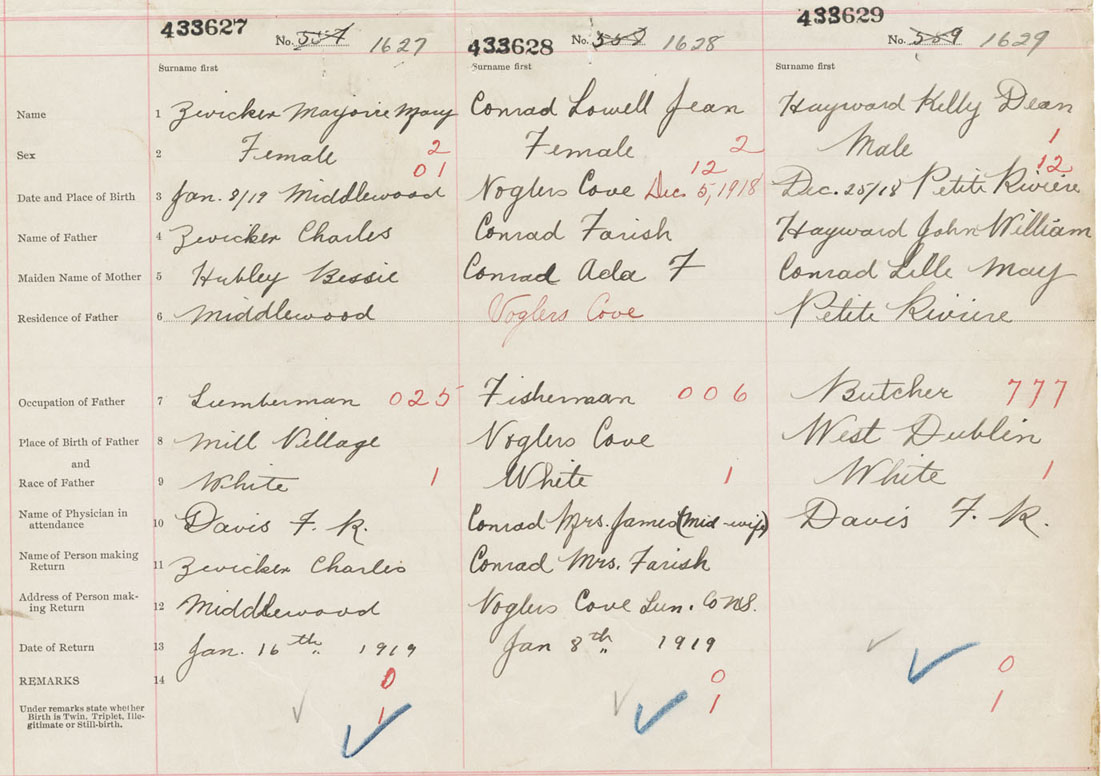 433627 433628 433629
No. 557 1627 No. 558 1628 No. 559 1629
Surname first Surname first Surname first
Name 1 Zwicker Marjorie Mary Conrad Lowell Jean Hayward Kelly Dean
Sex 2 Female 2 Female 2 Male 1
01 12 12
Date and Place of Birth 3 Jan. 8/19 Middlewood Voglers Cove Dec. 5, 1918 Dec. 25/18 Petite Riviere
Name of Father 4 Zwicker Charles Conrad Farish Hayward John William
Maiden Name of Mother 5 Hubley Bessie Conrad Ada F Conrad Lille May
Residence of Father 6 Middlewood Voglers Cove Petite Riviere
Occupation of Father 7 Lumberman 025 Fisherman 006 Butcher 777
Place of Birth of Father 8 Mill Village Voglers Cove West Dublin
and
Race of Father 9 White 1 White 1 White 1
Name of Physician in
attendance 10 Davis F. R. Conrad Mrs. James (Mid-wife) Davis F. R.
Name of Person making
Return 11 Zwicker Charles Conrad Mrs. Farish
Address of Person mak-
ing Return 12 Middlewood Voglers Cove Lun. Co NS.
Date of Return 13 Jan. 16th 1919 Jan 8th 1919
REMARKS 14 0 0 0
Under remarks state whether
Birth is Twin, Triplet, Ille-
gitimate or Still-birth. 1 1 1